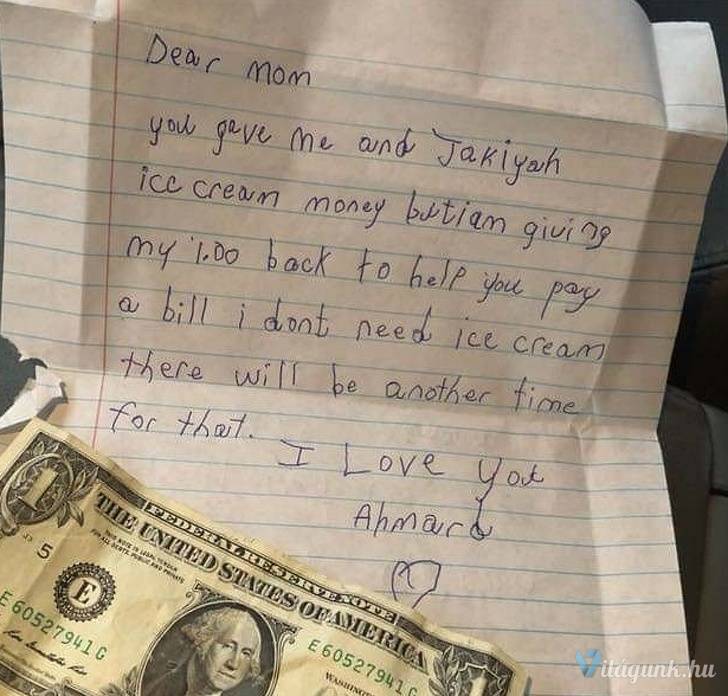 Dear mom
you gave me and Jakiyah
ice cream money butiam giving
my 1.00 back to help you pay
a bill i dont need ice cream
there will be another time
for that.
I Love you
Ahmard
FEDERAL RESERVE NOTE
THE UNITED STATES OF AMERICA
THIS NOTE IS LEGAL TENDER
FOR ALL DEBTS, PUBLIC AND PRIVATE
1
5
E
E 60527941 G
E 60527941 G
WASHINGTON
1
Vitágunk.hu